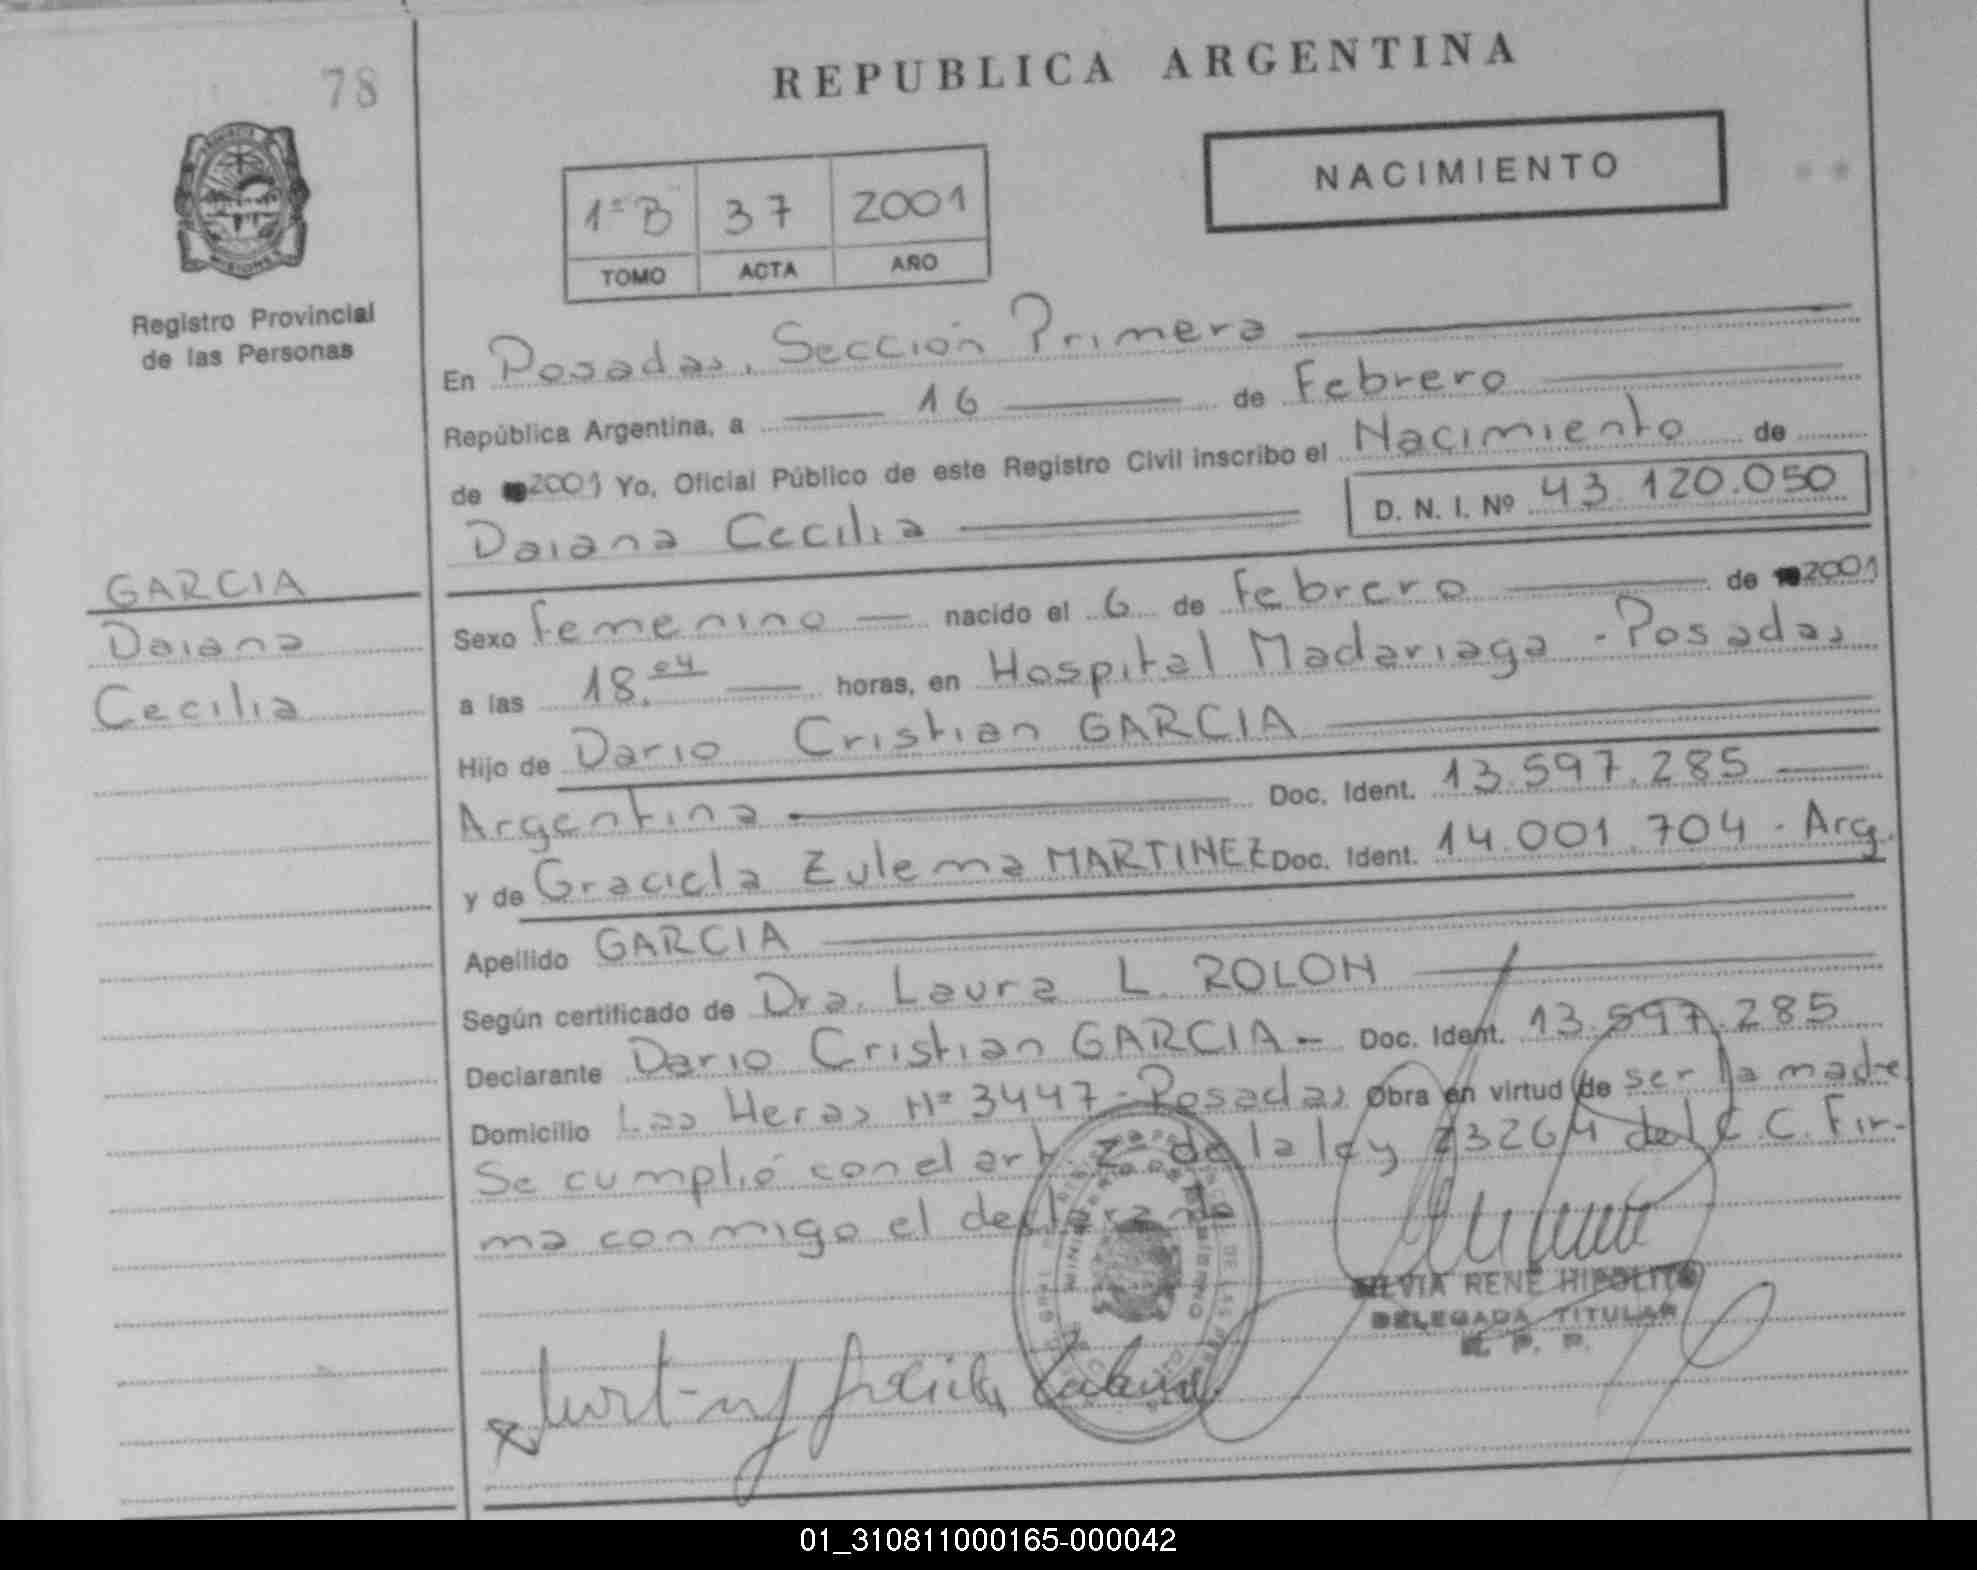 78
REPUBLICA ARGENTINA
NACIMIENTO
1ºB 37 2001
TOMO ACTA AÑO
Registro Provincial
de las Personas
En Posadas, Sección Primera
República Argentina, a 16 de Febrero
de 2001 Yo, Oficial Público de este Registro Civil inscribo el Nacimiento de
Daiana Cecilia D. N. I. Nº 43.120.050
GARCIA
Daiana
Cecilia
Sexo femenino nacido el 6 de Febrero de 2001
a las 18.04 horas, en Hospital Madariaga - Posadas
Hijo de Dario Cristian GARCIA
Argentina Doc. Ident. 13.597.285
y de Graciela Zulema MARTINEZ Doc. Ident. 14.001.704 - Arg.
Apellido GARCIA
Según certificado de Dra. Laura L. ROLON
Declarante Dario Cristian GARCIA - Doc. Ident. 13.597.285
Domicilio Las Heras Nº 3447 - Posadas Obra en virtud de ser la madre
Se cumplió con el art. 2º de la ley 23264 del C.C. Fir-
ma conmigo el declarante
SILVIA RENE HIPOLITO
DELEGADA TITULAR
R. P. P.
01_310811000165-000042